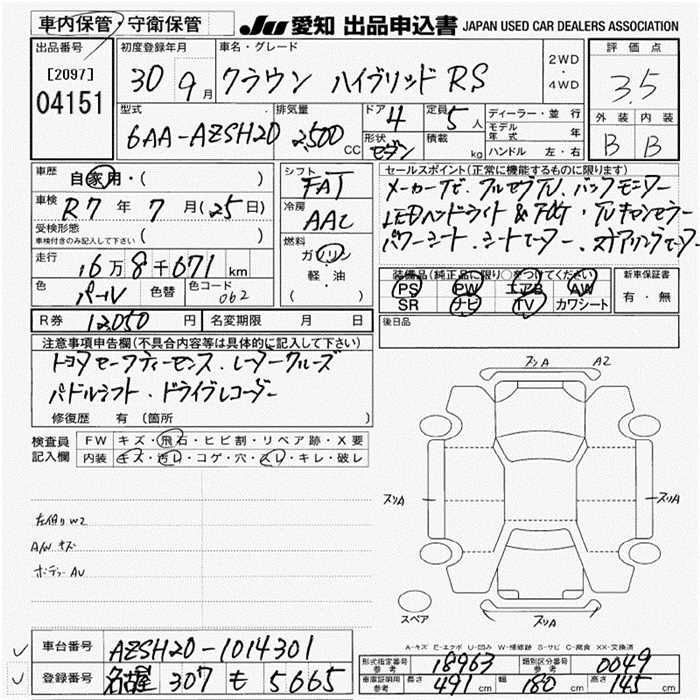 車内保管・守衛保管
JU 愛知 出品申込書 JAPAN USED CAR DEALERS ASSOCIATION
出品番号
[2097]
04151
初度登録年月
30 9月
車名・グレード
クラウン ハイブリッド RS
2WD
・
4WD
評価点
3.5
外装 内装
B B
型式
6AA-AZSH20
排気量
2,500 CC
ドア
4
定員
5人
形状
セダン
積載
kg
ディーラー・並行
モデル年式 年
ハンドル 左・右
車歴
自家用・( )
車検
R7年7月(25日)
受検形態
車検付きのみ記入して下さい ( )
走行
16万8千671km
色
パール
色替
色コード
062
シフト
FAT
冷房
AAC
燃料
ガソリン
軽・油
( )
セールスポイント(正常に機能するものに限ります)
メーカーナビ、フルセグTV、バックモニター
LEDヘッドライト & FOG・TVキャンセラー
パワーシート、シートヒーター、ステアリングヒーター
装備品(純正品に限り○をつけてください)
PS PW エアB AW
SR ナビ TV カワシート
新車保証書
有・無
後日品
R券 12,050円 名変期限 月 日
注意事項申告欄(不具合内容等は具体的に記入して下さい)
トヨタセーフティーセンス・レーダークルーズ
パドルシフト・ドライブレコーダー
修復歴 有 (箇所 )
検査員
記入欄
FW キズ・飛石・ヒビ割・リペア跡・X要
内装 キズ・汚レ・コゲ・穴・スレ・キレ・破レ
左 W2
A/W キズ
ボデー AU
スリA A2
スリA
スリA
スリA
スペア
A-キズ E-エクボ U-凹ミ W-補修跡 S-サビ C-腐食 XX-交換済
車台番号
AZSH20-1014301
登録番号
名古屋 307 も 5665
形式指定番号
参考
18963
類別区分番号
参考
0049
車庫証明用
参考
長さ 491cm 幅 180cm 高さ 145cm